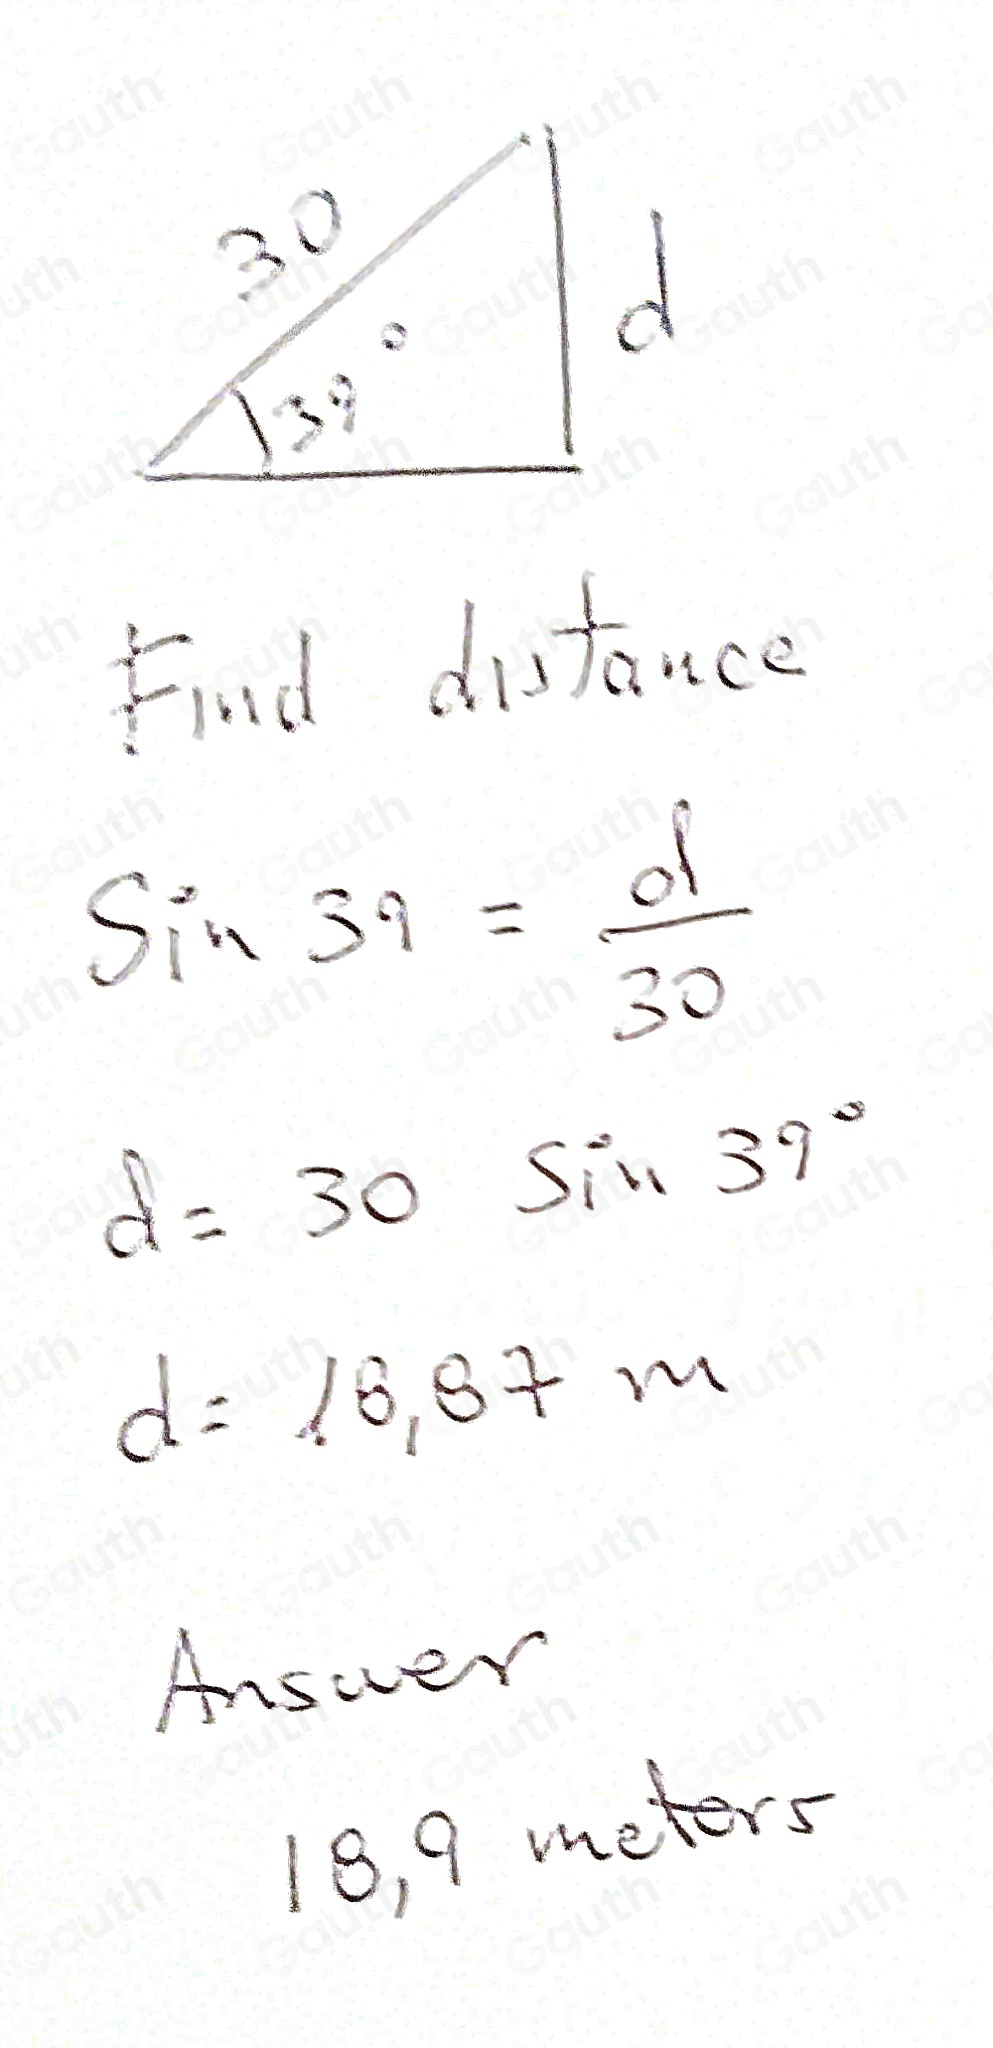 30
d
39°
Find distance
Sin 39 = d/30
d= 30 Sin 39°
d= 18,87 m
Answer
18,9 meters
Gauth